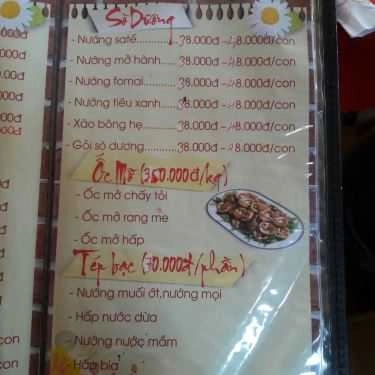 Sò Dương
- Nướng satế............38.000đ -48.000đ/con
- Nướng mở hành....38.000đ -48.000đ/con
- Nướng fomai.........38.000đ -48.000đ/con
- Nướng tiêu xanh...38.000đ -48.000đ/con
- Xào bông hẹ.........38.000đ -48.000đ/con
- Gỏi sò dương........38.000đ -48.000đ/con
Ốc Mỡ (350.000đ/kg)
- Ốc mở cháy tỏi
- Ốc mở rang me
- Ốc mở hấp
Tép bạc (70.000đ/phần)
- Nướng muối ớt,nướng mọi
- Hấp nước dừa
- Nướng nước mắm
- Hấp bia